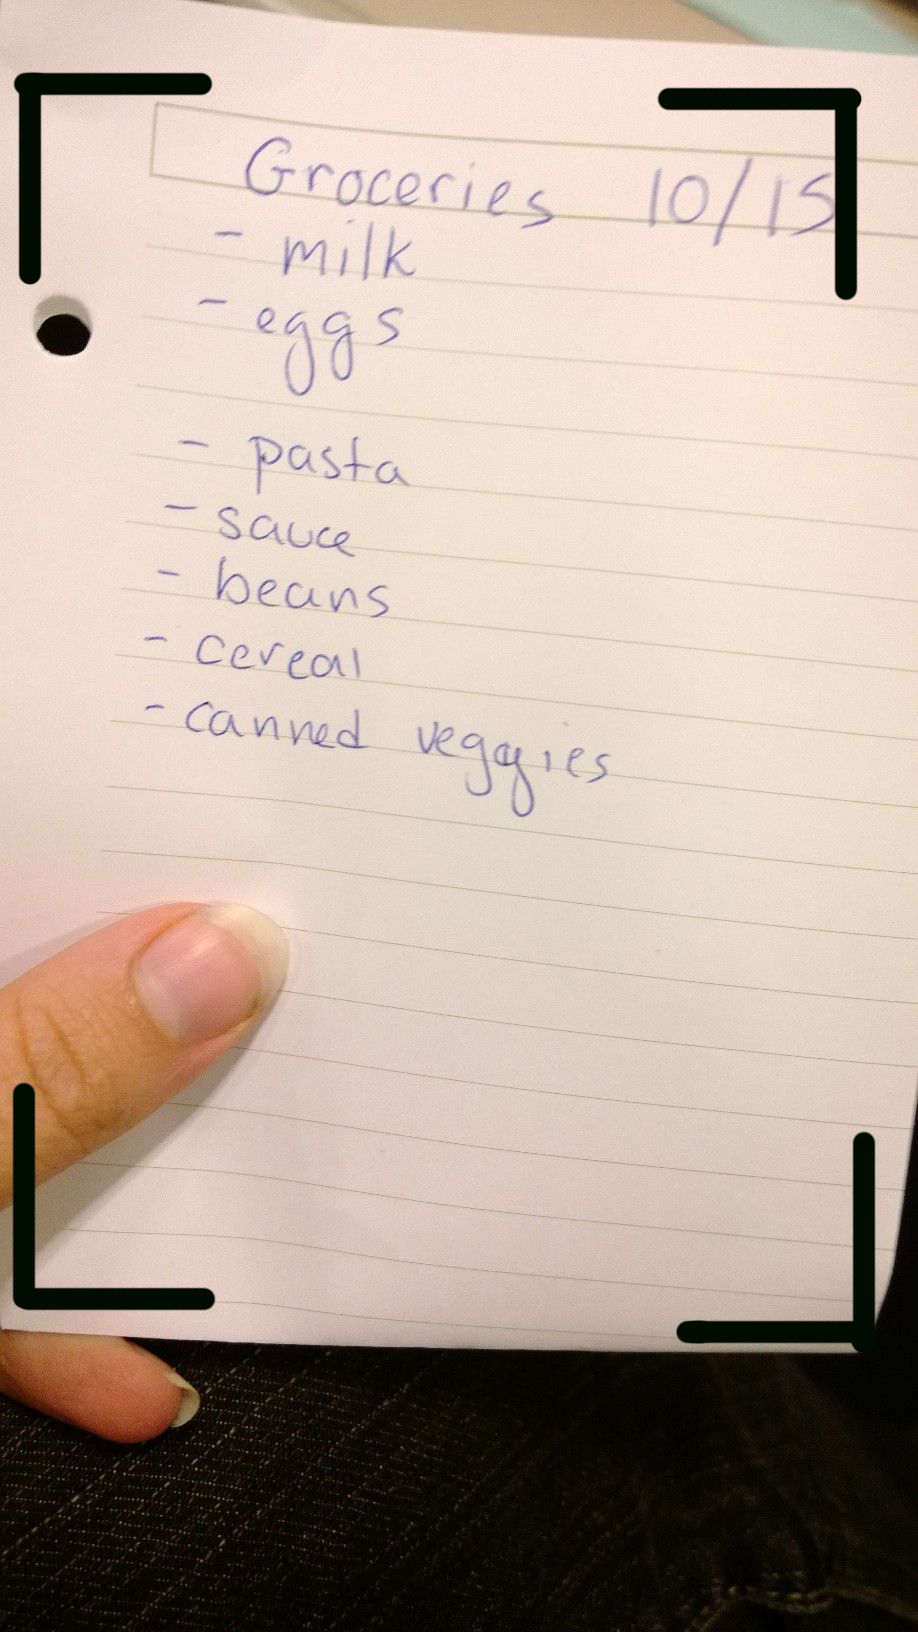 Groceries 10/15
- milk
- eggs
- pasta
- sauce
- beans
- cereal
- canned veggies